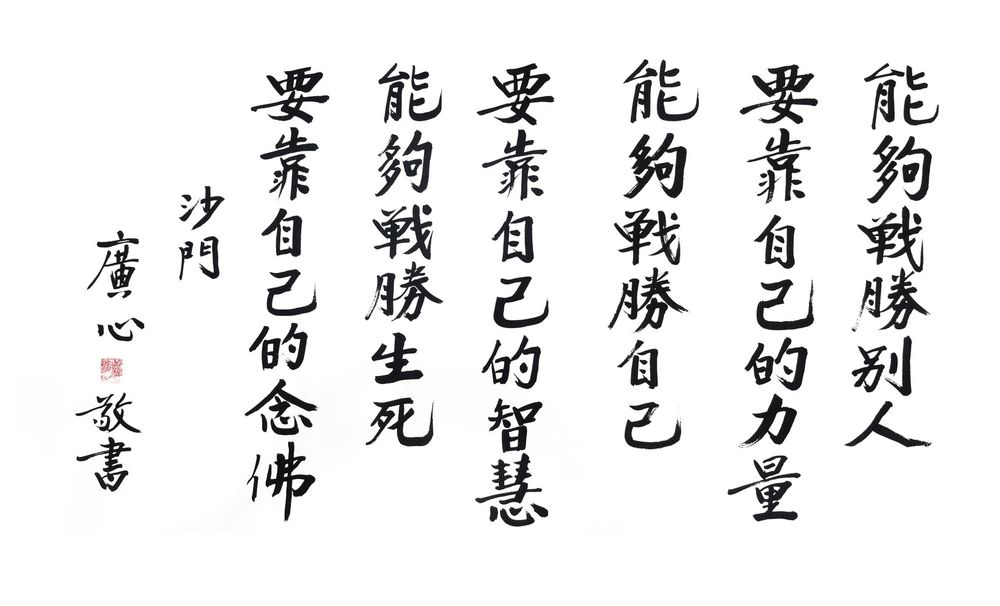 能夠戦勝别人
要靠自己的力量
能夠戦勝自己
要靠自己的智慧
能夠戦勝生死
要靠自己的念佛
沙門
廣心
敬書